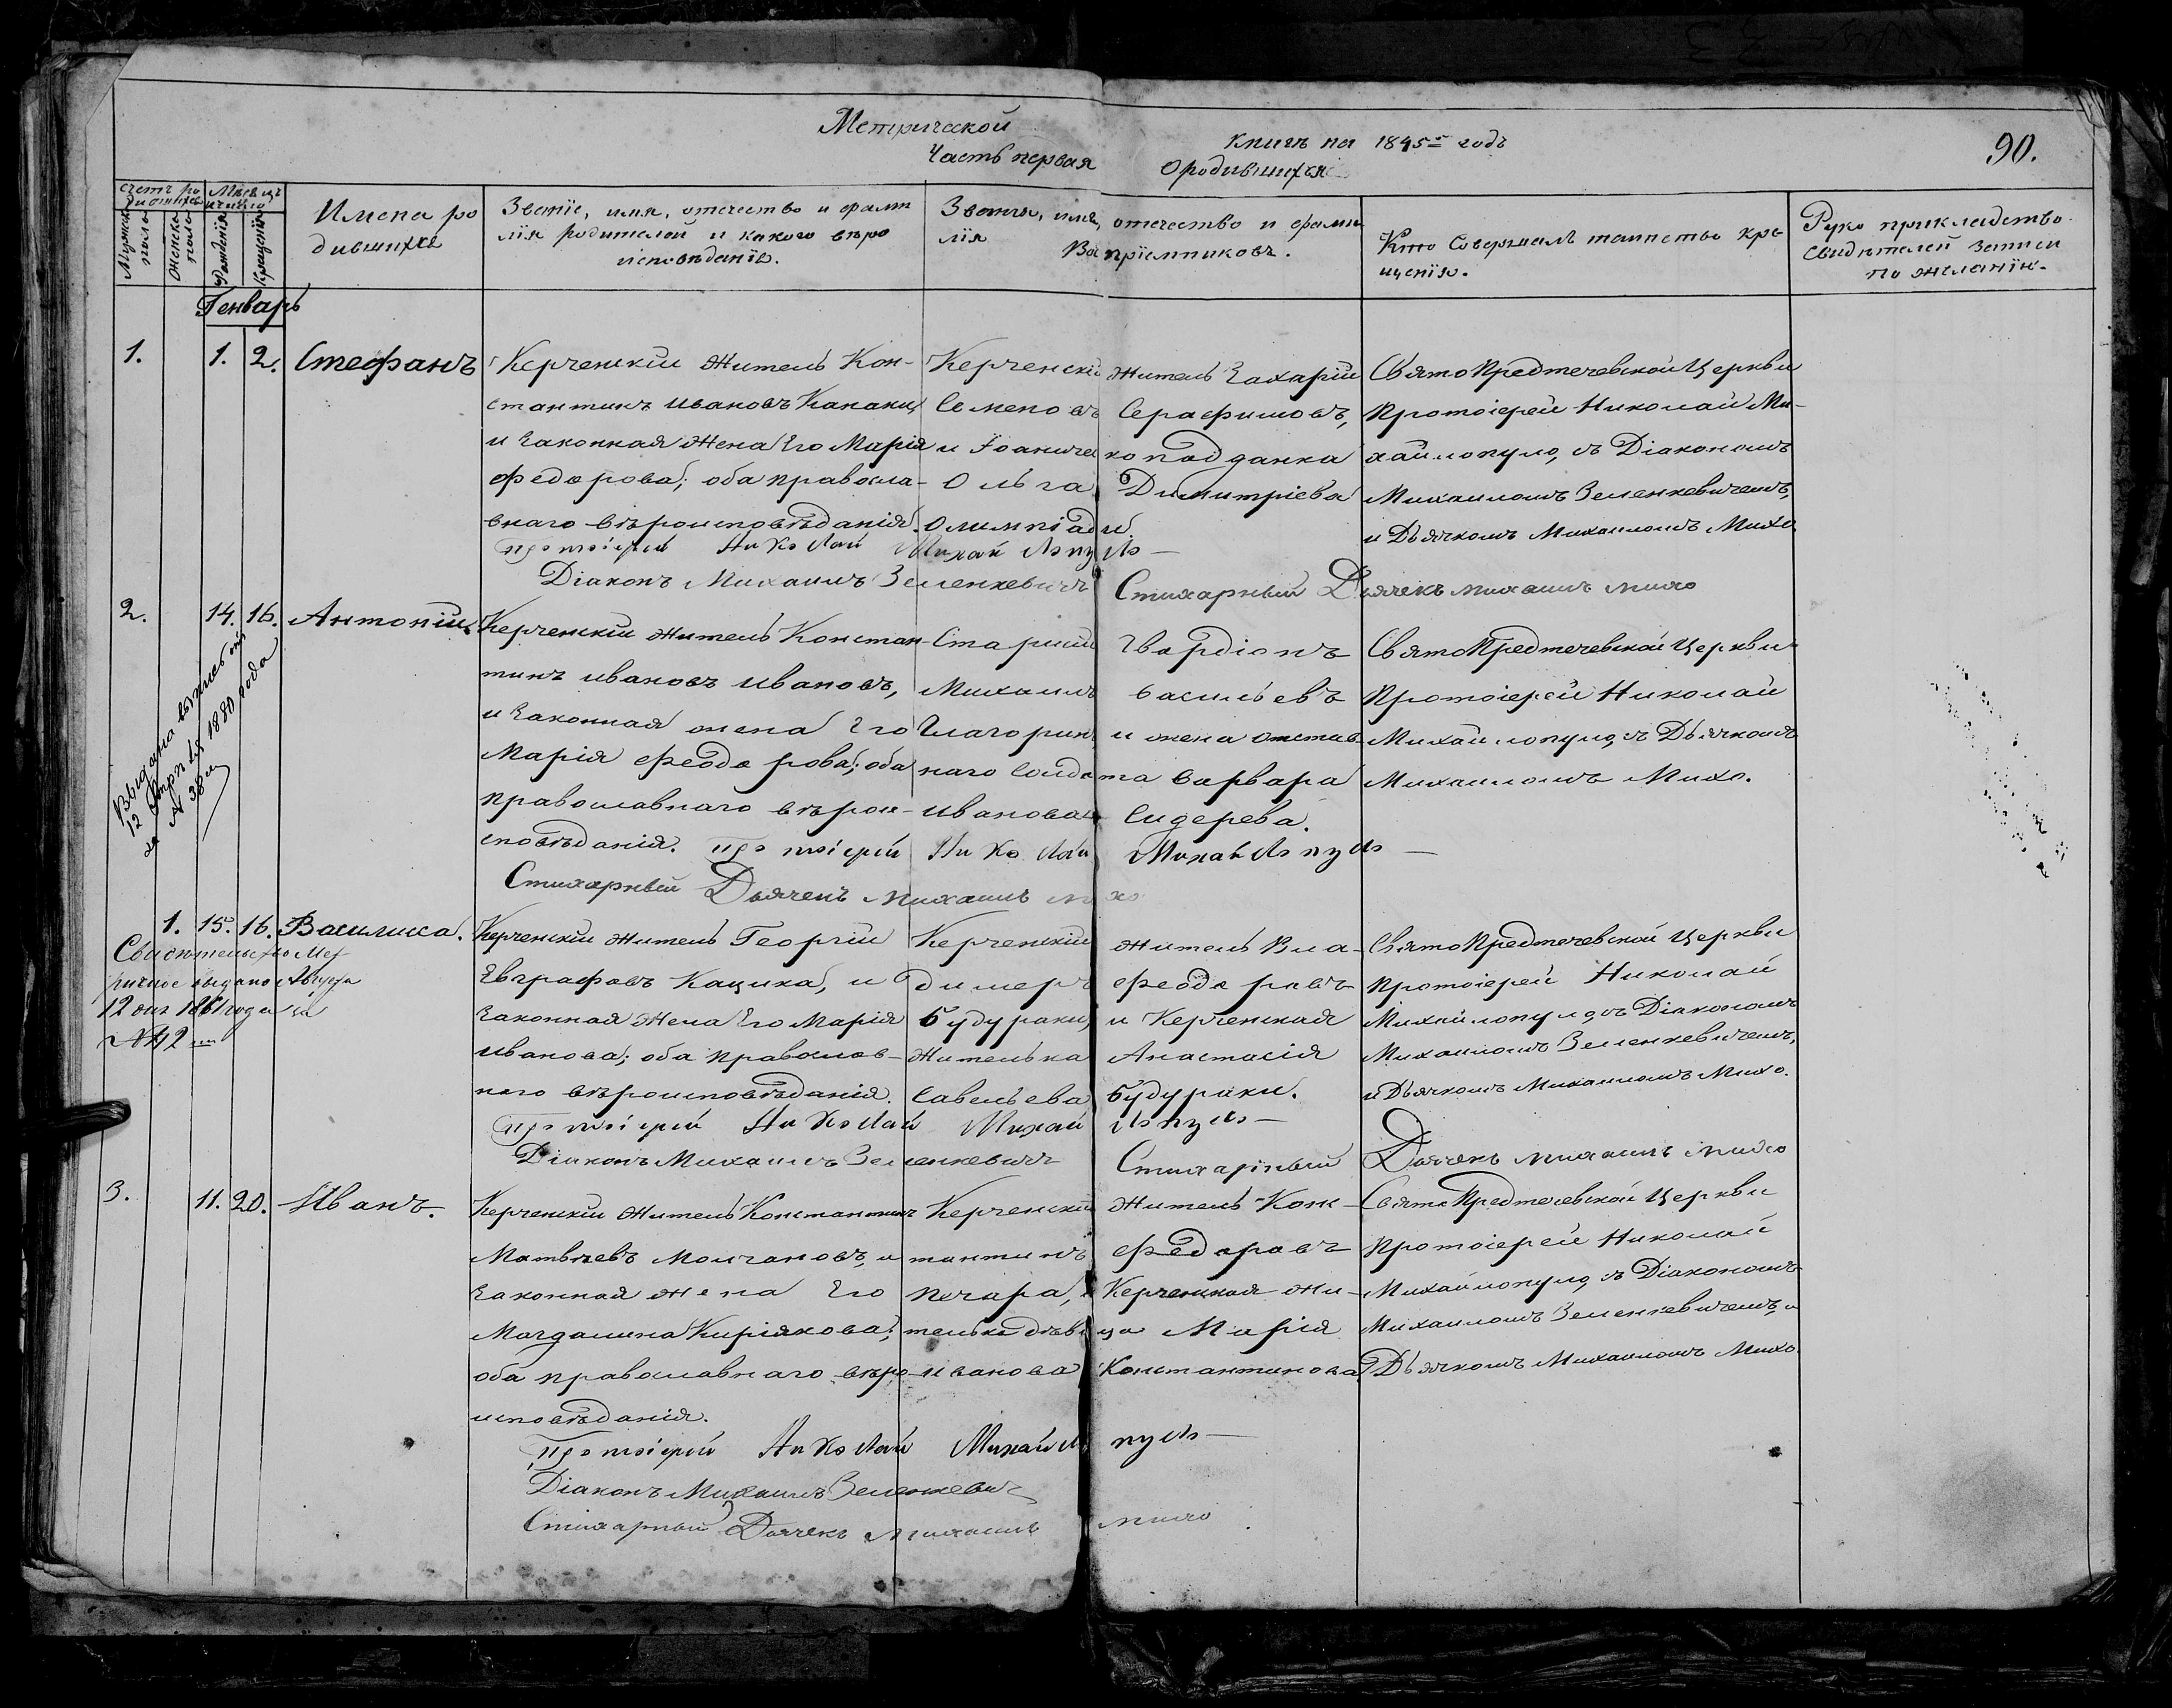 Метрической книги на 1845й годъ
90.
Часть первая О родившихся
Счетъ родившихся
Мужеска пола
Женска пола
Мѣсяцъ и число
Рожденія
Крещенія
Имена родившихся
Званіе, имя, отечество и фамилія родителей и какого вѣроисповѣданія.
Званіе, имя, отечество и фамилія Воспріемниковъ.
Кто совершалъ таинство крещенія.
Рукоприкладство свидѣтелей записи по желанію.
Генварь
1. 1. 2. Стефанъ
Керченскій житель Кон-
стантинъ Ивановъ
и законная жена Его Марія
Федорова; оба правосла-
внаго вѣроисповѣданія.
Керченскій житель Захарій
Семеновъ Серафимовъ,
и Іоаническо подданка
Ольга Димитріева
Олимпіади.
Святопредтечевской Церкви
Протоіерей Николай Ми-
хайлопуло, съ Діакономъ
Михаиломъ Зеленкевичемъ,
и Дьячкомъ Михаиломъ Михо
Протоіерей Николай Михайлопуло
Діаконъ Михаилъ Зеленкевичъ Стихарный Дьячекъ Михаилъ Михо
2. 14. 16. Антоній.
Керченскій житель Констан-
тинъ Ивановъ Ивановъ,
и законная жена Его
Марія Феодорова; оба
православнаго вѣрои-
сповѣданія.
Старшій Гвардіонъ
Михаилъ Васильевъ
и жена отстав-
наго солдата Варвара
Иванова Сидерева.
Святопредтечевской Церкви
Протоіерей Николай
Михайлопуло, съ Дьячкомъ
Михаиломъ Михо.
Протоіерей Николай Михайлопуло
Стихарный Дьячекъ Михаилъ Михо
Выдана выпись
12 Апрѣля 1880 года
за № 38м
1. 15. 16. Василиса.
Свидѣтельство Мет
ричное выдано Августа
12 дня 1861 года за
№ 42
Керченскій житель Георгій
Евграфовъ Кацика, и
законная жена Его Марія
Иванова; оба православ-
наго вѣроисповѣданія.
Керченскій житель Вла-
димеръ Феодоровъ
Будураки, и Керченская
жителька Анастасія
Савельева Будураки.
Святопредтечевской Церкви
Протоіерей Николай
Михайлопуло, съ Діакономъ
Михаиломъ Зеленкевичемъ,
и Дьячкомъ Михаиломъ Михо.
Протоіерей Николай Михайлопуло
Діаконъ Михаилъ Зеленкевичъ Стихарный Дьячекъ Михаилъ Михо
3. 11. 20. Иванъ.
Керченскій житель Константинъ
Матвѣевъ Молчановъ, и
законная жена Его
Магдалина Киріякова;
оба православнаго вѣро-
исповѣданія.
Керченскій житель Конс-
тантинъ Федоровъ
Печара, Керченская жи-
телька дѣвица Марія
Иванова Константинова
Святопредтечевской Церкви
Протоіерей Николай
Михайлопуло, съ Діакономъ
Михаиломъ Зеленкевичемъ, и
Дьячкомъ Михаиломъ Михо.
Протоіерей Николай Михайлопуло
Діаконъ Михаилъ Зеленкевичъ
Стихарный Дьячекъ Михаилъ Михо